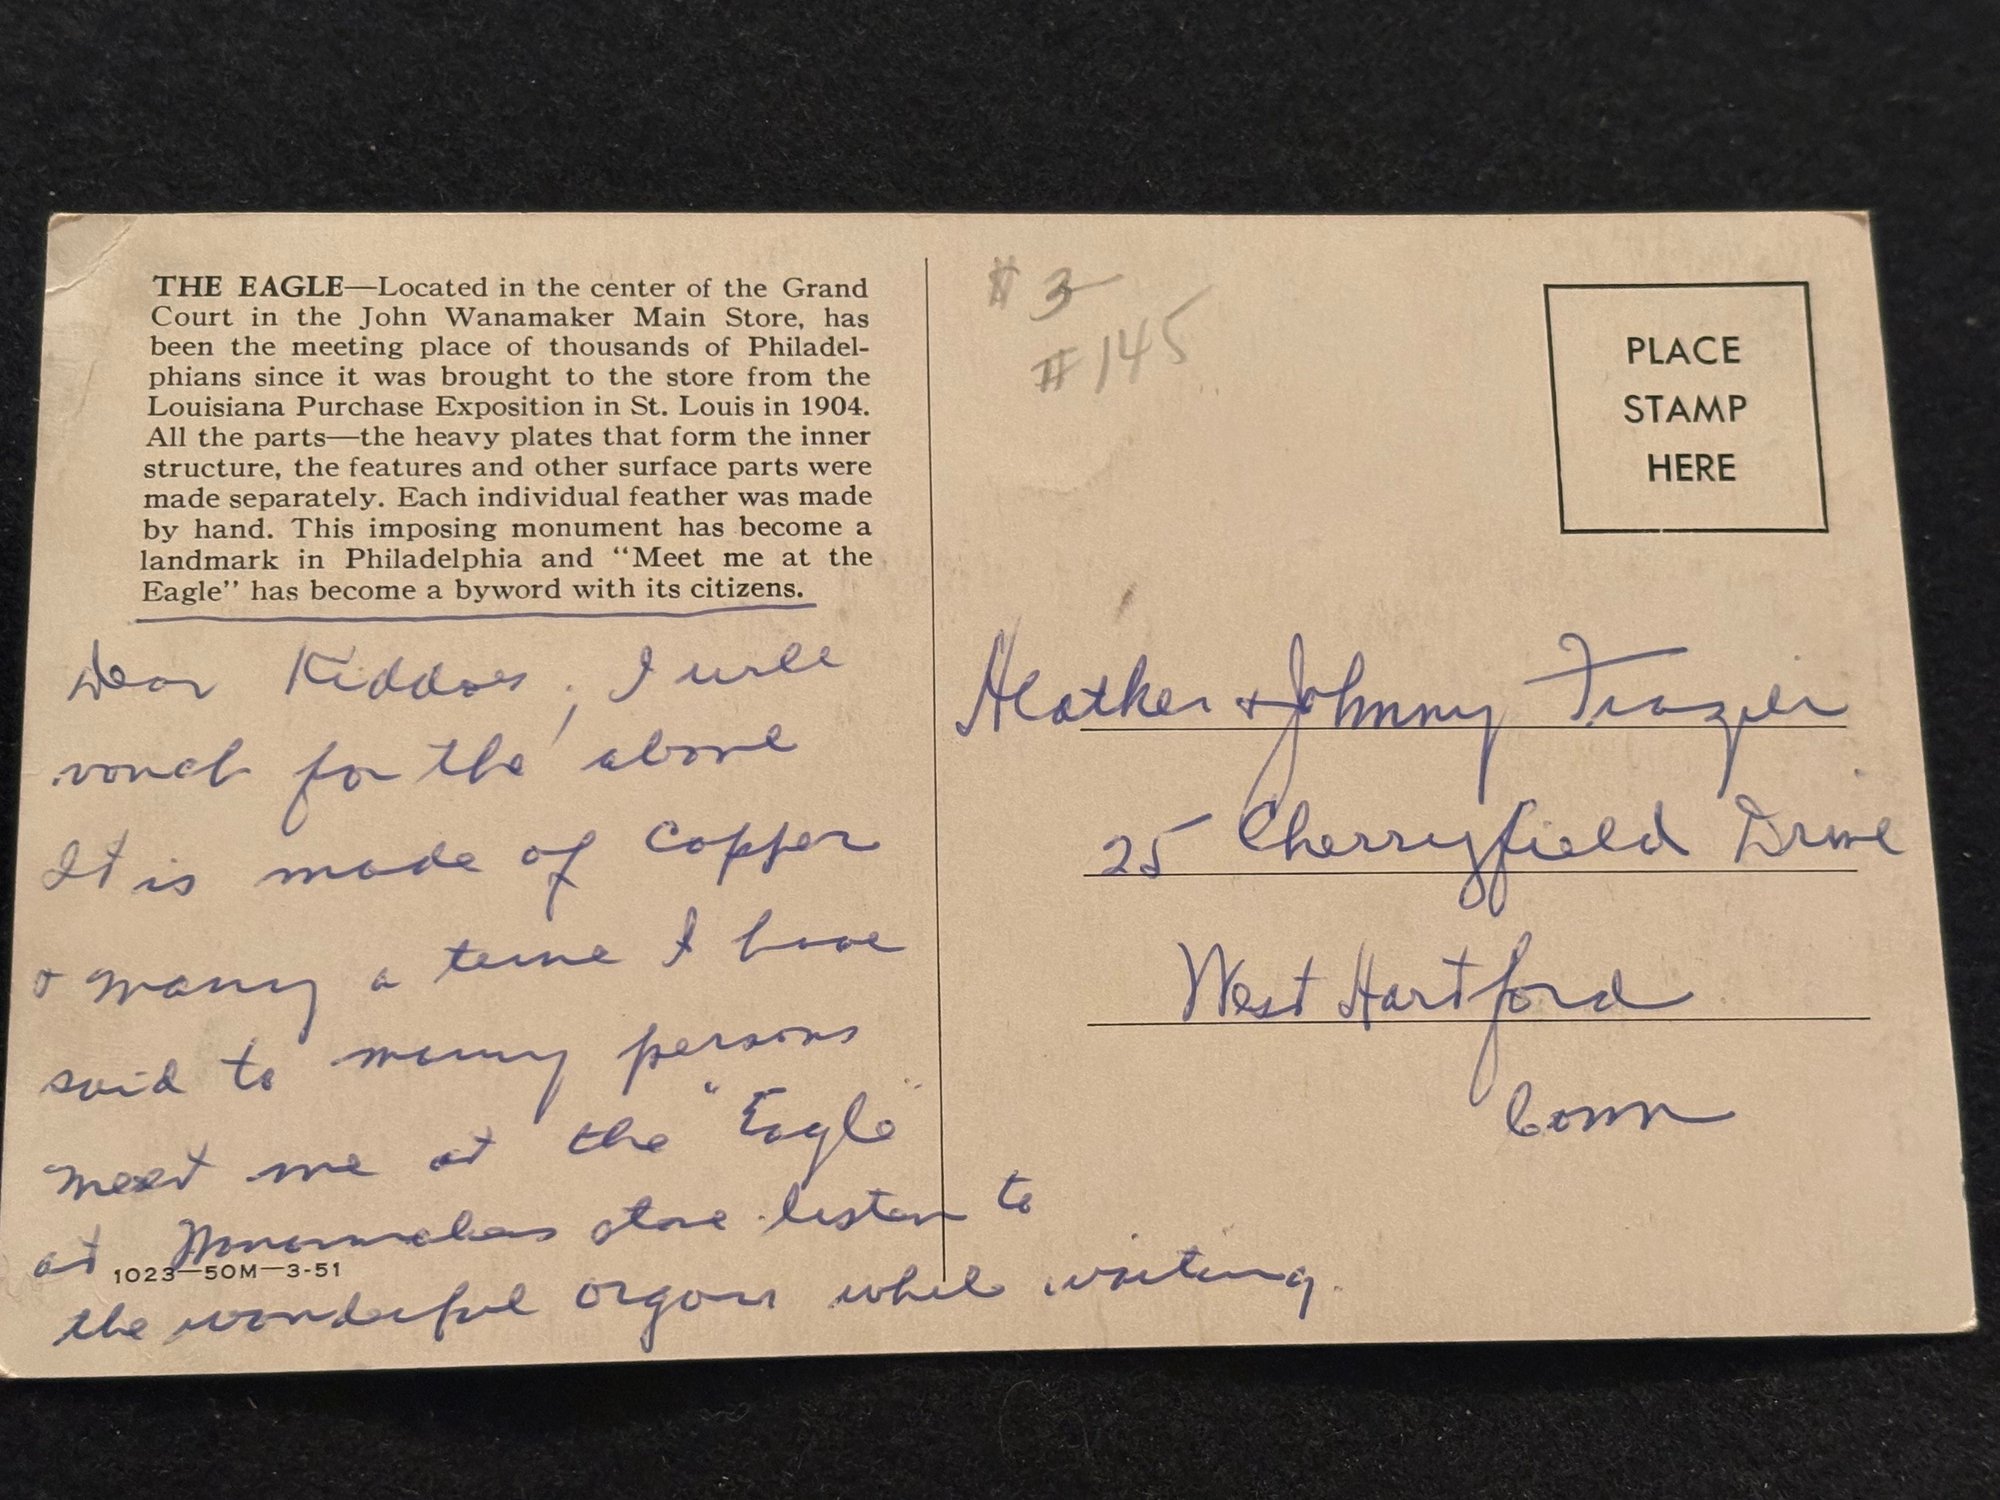 THE EAGLE—Located in the center of the Grand
Court in the John Wanamaker Main Store, has
been the meeting place of thousands of Philadel-
phians since it was brought to the store from the
Louisiana Purchase Exposition in St. Louis in 1904.
All the parts—the heavy plates that form the inner
structure, the features and other surface parts were
made separately. Each individual feather was made
by hand. This imposing monument has become a
landmark in Philadelphia and "Meet me at the
Eagle" has become a byword with its citizens.
Dear Kiddoes, I will
vouch for the above
It is made of copper
& many a time I have
said to many persons
meet me at the "Eagle"
at Wanamakers store listen to
the wonderful organ while waiting.
1023—50M—3-51
# 3
#145
PLACE
STAMP
HERE
Heather & Johnny Frazier
25 Cherryfield Drive
West Hartford
Conn